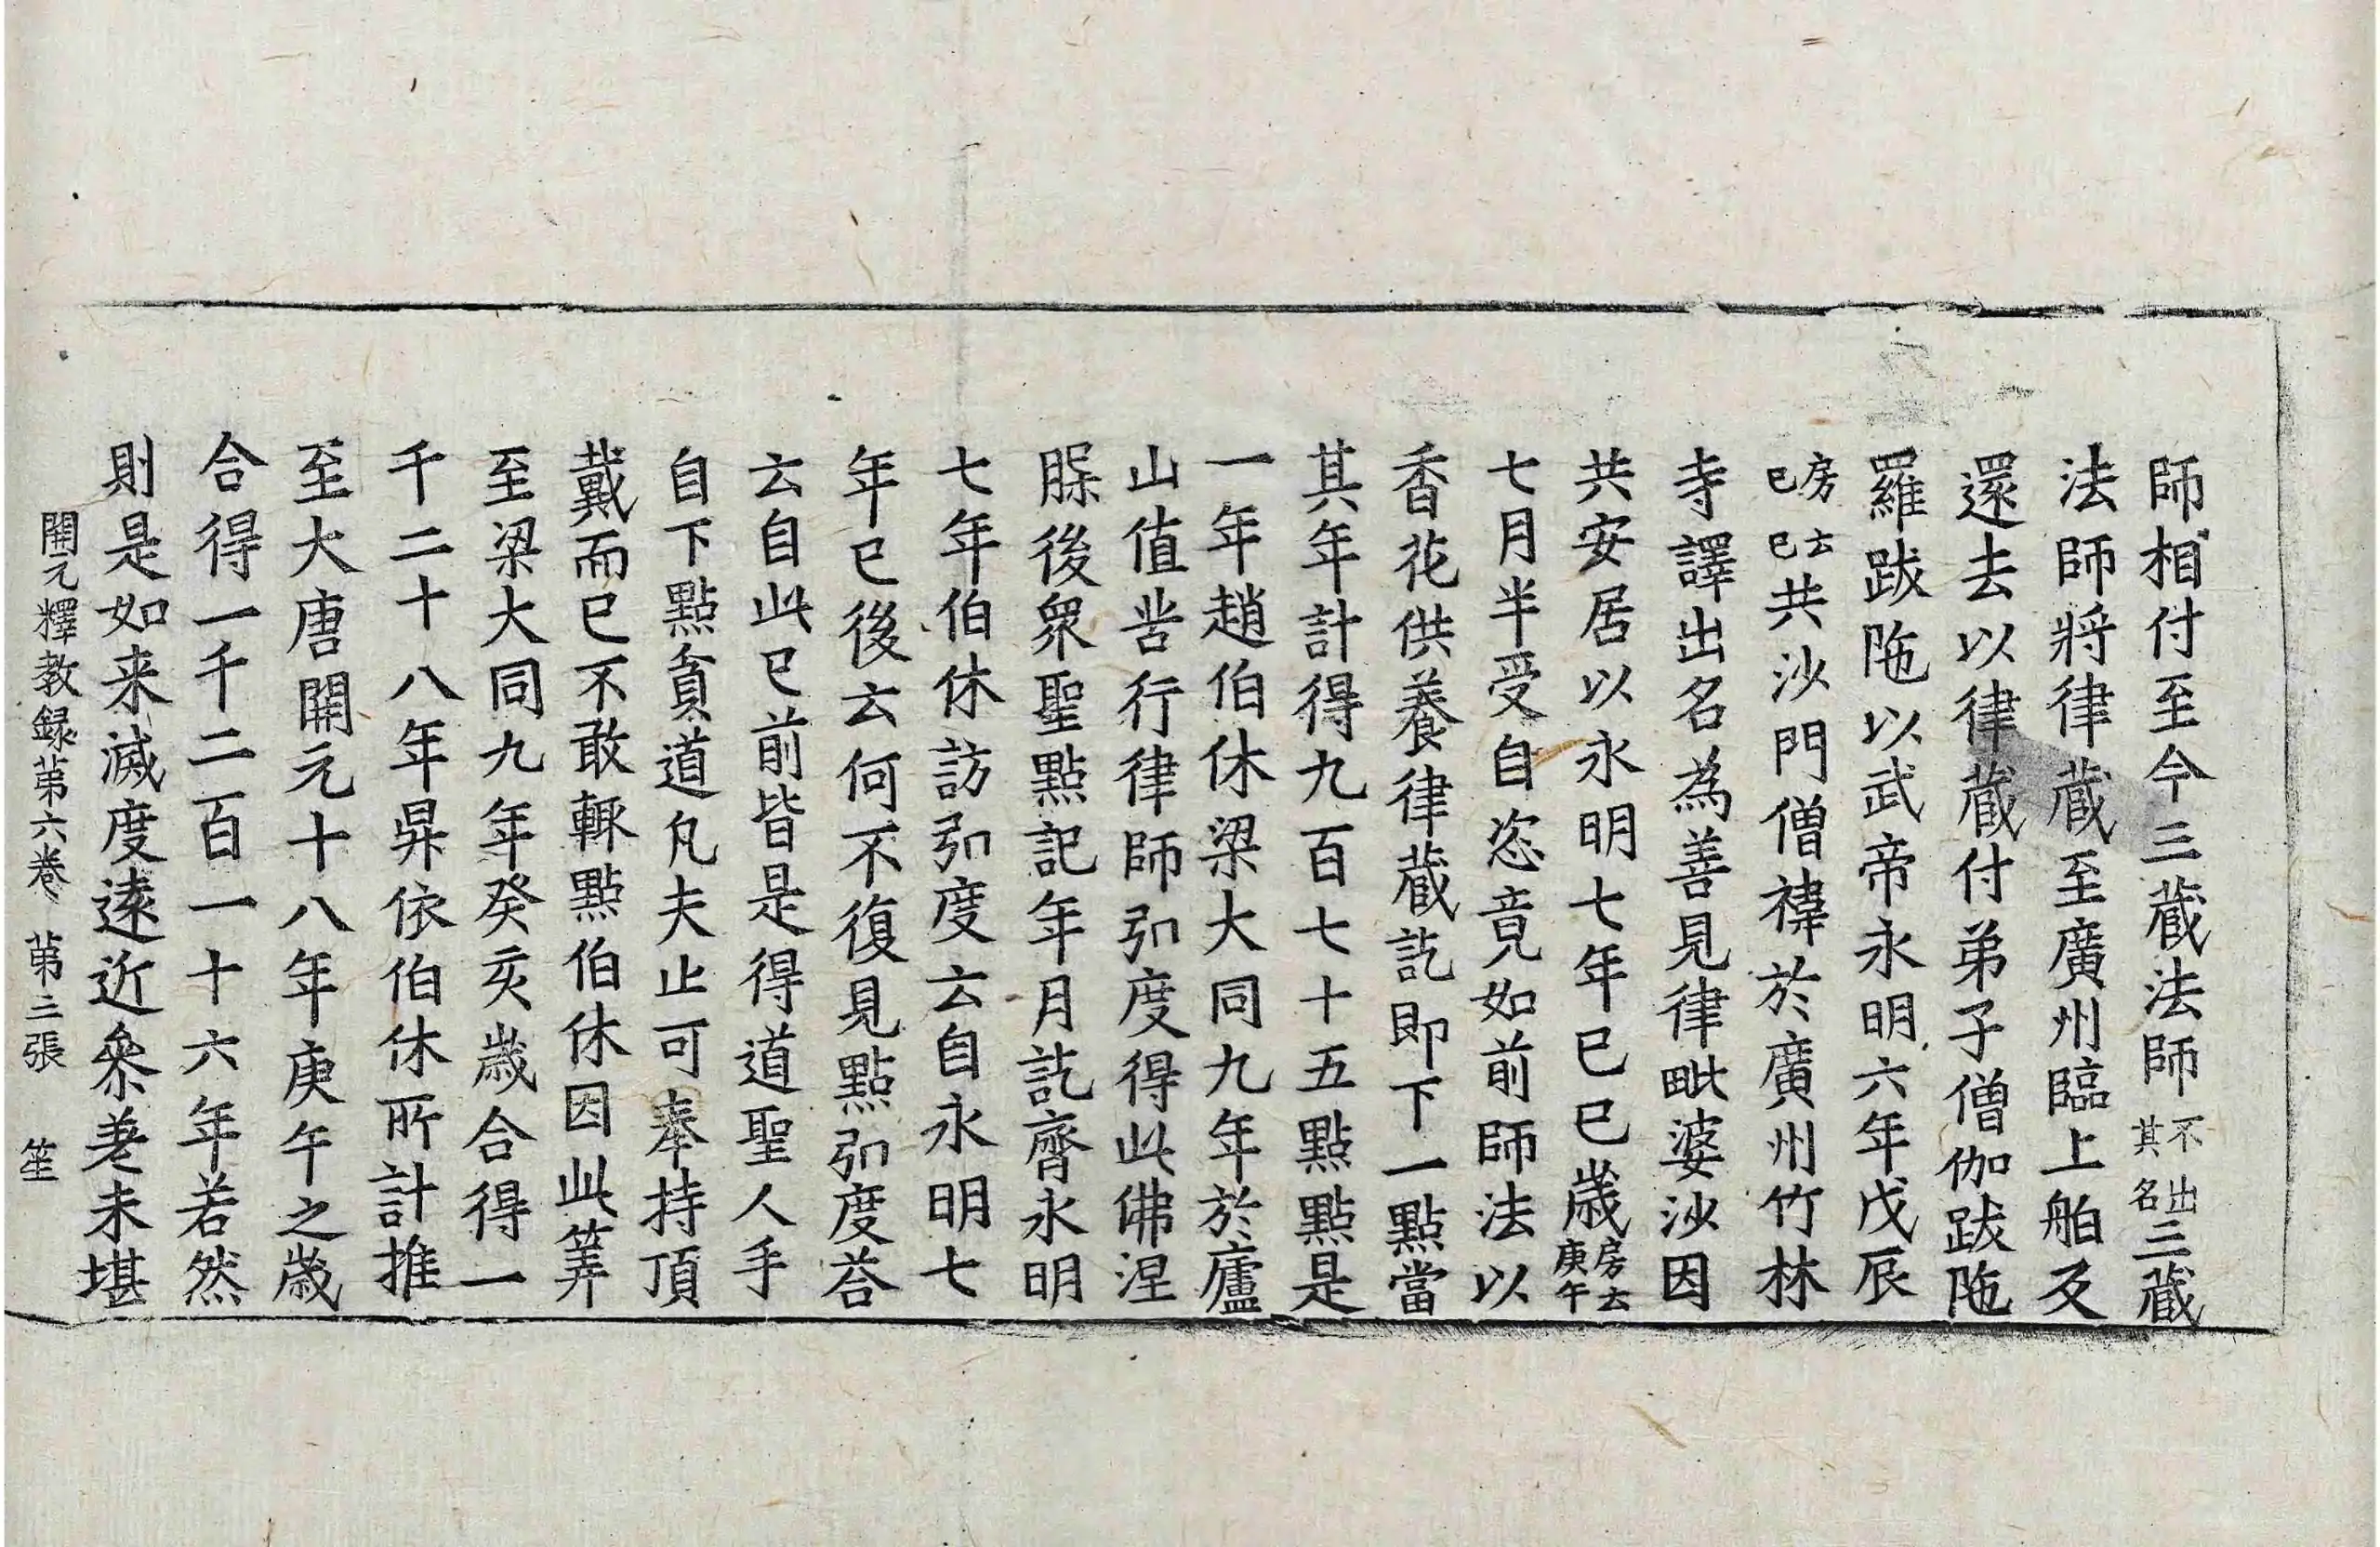 師相付至今三藏法師不出其名三藏
法師將律藏至廣州臨上舶及
還去以律藏付弟子僧伽跋陁
羅跋陁以武帝永明六年戊辰
房云己巳共沙門僧禕於廣州竹林
寺譯出名為善見律毗婆沙因
共安居以永明七年己巳歲房云庚午
七月半受自恣竟如前師法以
香花供養律藏訖即下一點當
其年計得九百七十五點點是
一年趙伯休梁大同九年於廬
山值苦行律師弘度得此佛涅
槃後衆聖點記年月訖齊永明
七年伯休訪弘度云自永明七
年已後云何不復見點弘度荅
云自此已前皆是得道聖人手
自下點貧道凡夫止可奉持頂
戴而已不敢輙點伯休因此筭
至梁大同九年癸亥歲合得一
千二十八年昇依伯休所計推
至大唐開元十八年庚午之歲
合得一千二百一十六年若然
則是如来滅度遠近叅差未堪
開元釋教録第六卷 第三張 笙